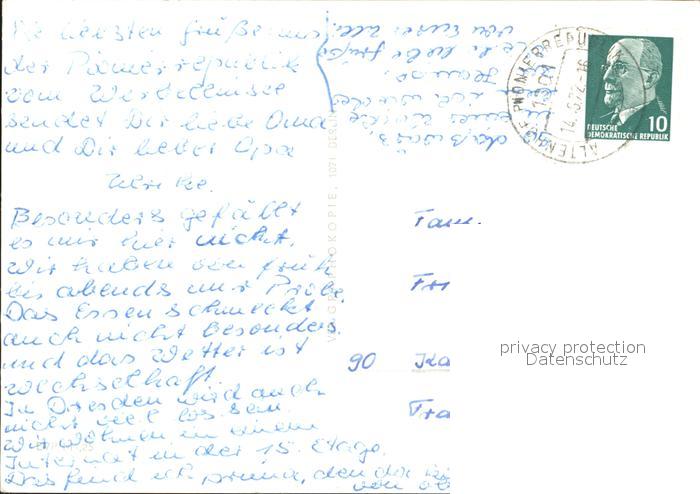 Die herzten Grüße aus
der Pionierrepublik
vom Werbellinsee
sendet Dir liebe Oma
und Dir lieber Opa
Ulrike.
Besonders gefällt
es mir hier nicht.
Wir haben von früh
bis abends nur Probe.
Das Essen schmeckt
auch nicht besonders.
und das Wetter ist
wechselhaft.
In Dresden wird auch
nicht viel los sein.
Wir wohnen in einem
Internat in der 15. Etage.
Das find ich prima, denn da
von
daß
ich
liebe Grüße
von Eurer
1501
PIONIERREPUBLIK
14.6.72-16
ALTENHOF
DEUTSCHE
DEMOKRATISCHE REPUBLIK
10
1071 BERLIN
Fam.
90
privacy protection
Datenschutz